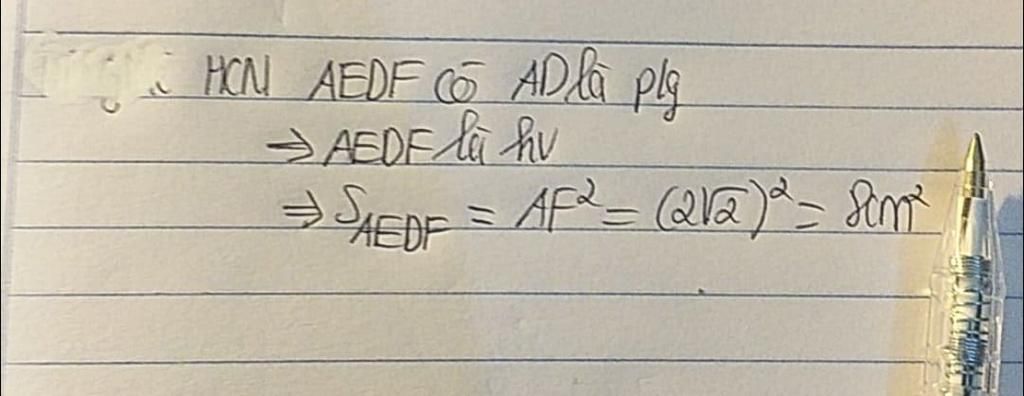 HCN AEDF có AD là plg
⇒ AEDF là hv
⇒ S_AEDF = AF² = (2√2)² = 8cm²